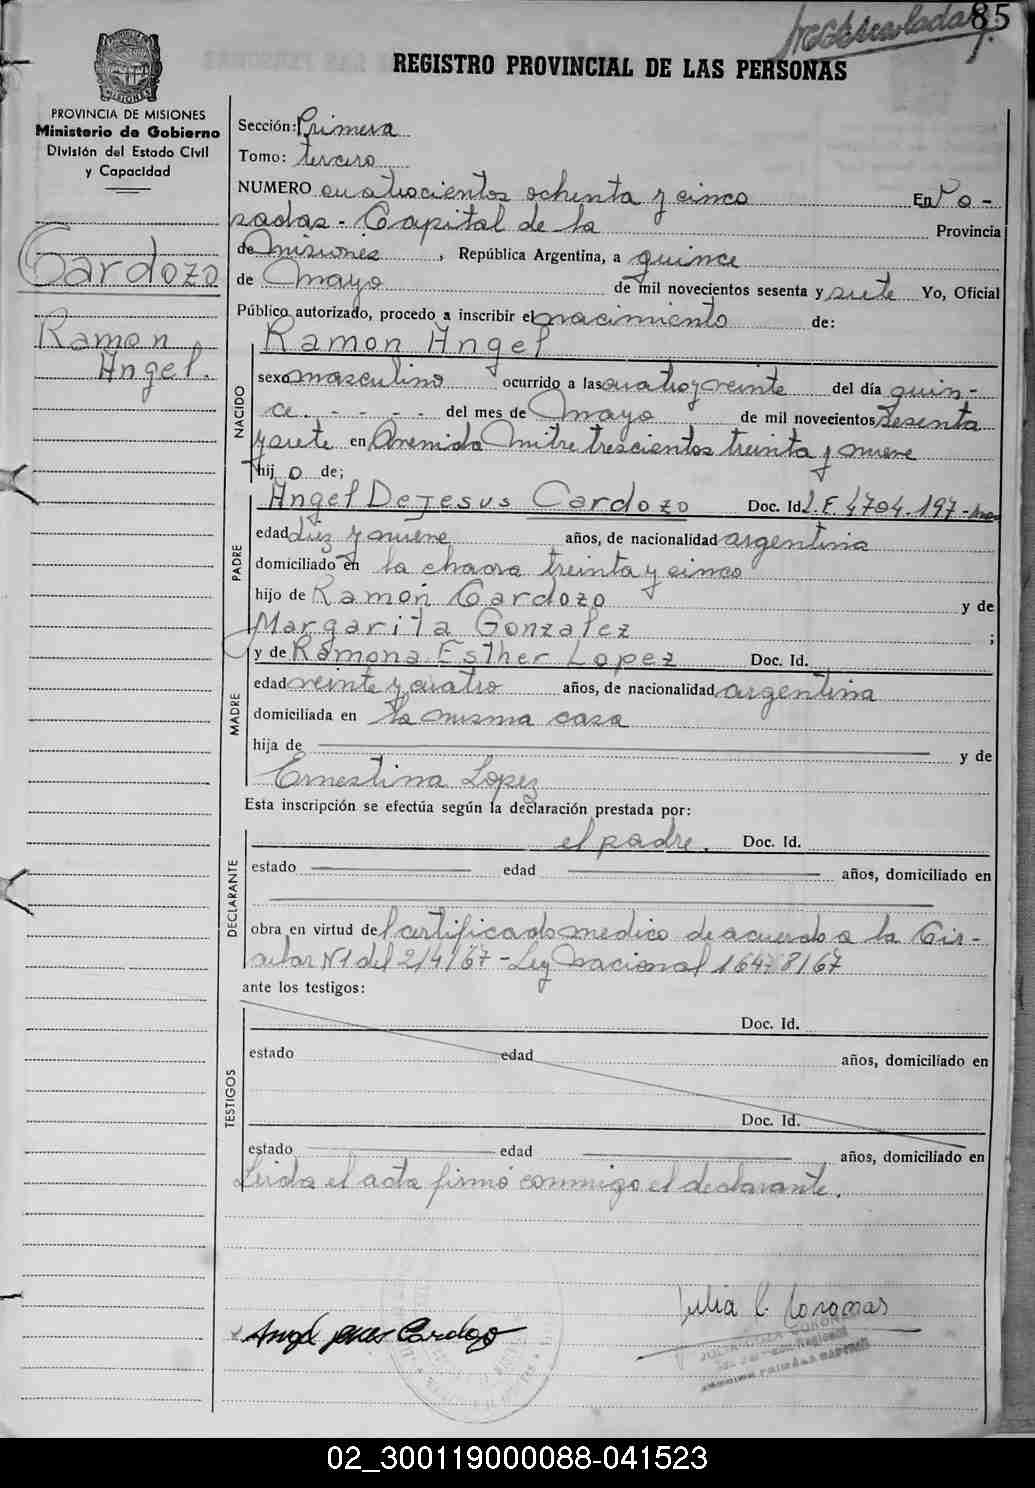 85
REGISTRO PROVINCIAL DE LAS PERSONAS
MISIONES
PROVINCIA DE MISIONES
Ministerio de Gobierno
División del Estado Civil
y Capacidad
Cardozo
Ramon
Angel.
Sección: Primera
Tomo: tercero
NUMERO cuatrocientos ochenta y cinco En Po-
sadas - Capital de la Provincia
de Misiones, República Argentina, a quince
de Mayo de mil novecientos sesenta y siete Yo, Oficial
Público autorizado, procedo a inscribir el nacimiento de:
NACIDO
Ramon Angel
sexo masculino ocurrido a las cuatro y veinte del día quin-
ce. - - - - del mes de Mayo de mil novecientos sesenta
y siete en Avenida Mitre trescientos treinta y nueve
hijo de;
PADRE
Angel De Jesus Cardozo Doc. Id. L.E. 4704.197-
edad diez y nueve años, de nacionalidad argentina
domiciliado en la chacra treinta y cinco
hijo de Ramon Cardozo y de
Margarita Gonzalez ;
y de Ramona Esther Lopez Doc. Id.
MADRE
edad veinte y cuatro años, de nacionalidad argentina
domiciliada en la misma casa
hija de y de
Ernestina Lopez
Esta inscripción se efectúa según la declaración prestada por:
DECLARANTE
el padre. Doc. Id.
estado edad años, domiciliado en
obra en virtud del certificado medico de acuerdo a la Cir-
cular N1 del 2/4/67 - Ley Nacional 16478/67
ante los testigos:
TESTIGOS
Doc. Id.
estado edad años, domiciliado en
Doc. Id.
estado edad años, domiciliado en
Leida el acta firmó conmigo el declarante.
Angel Jesus Cardozo
02_300119000088-041523